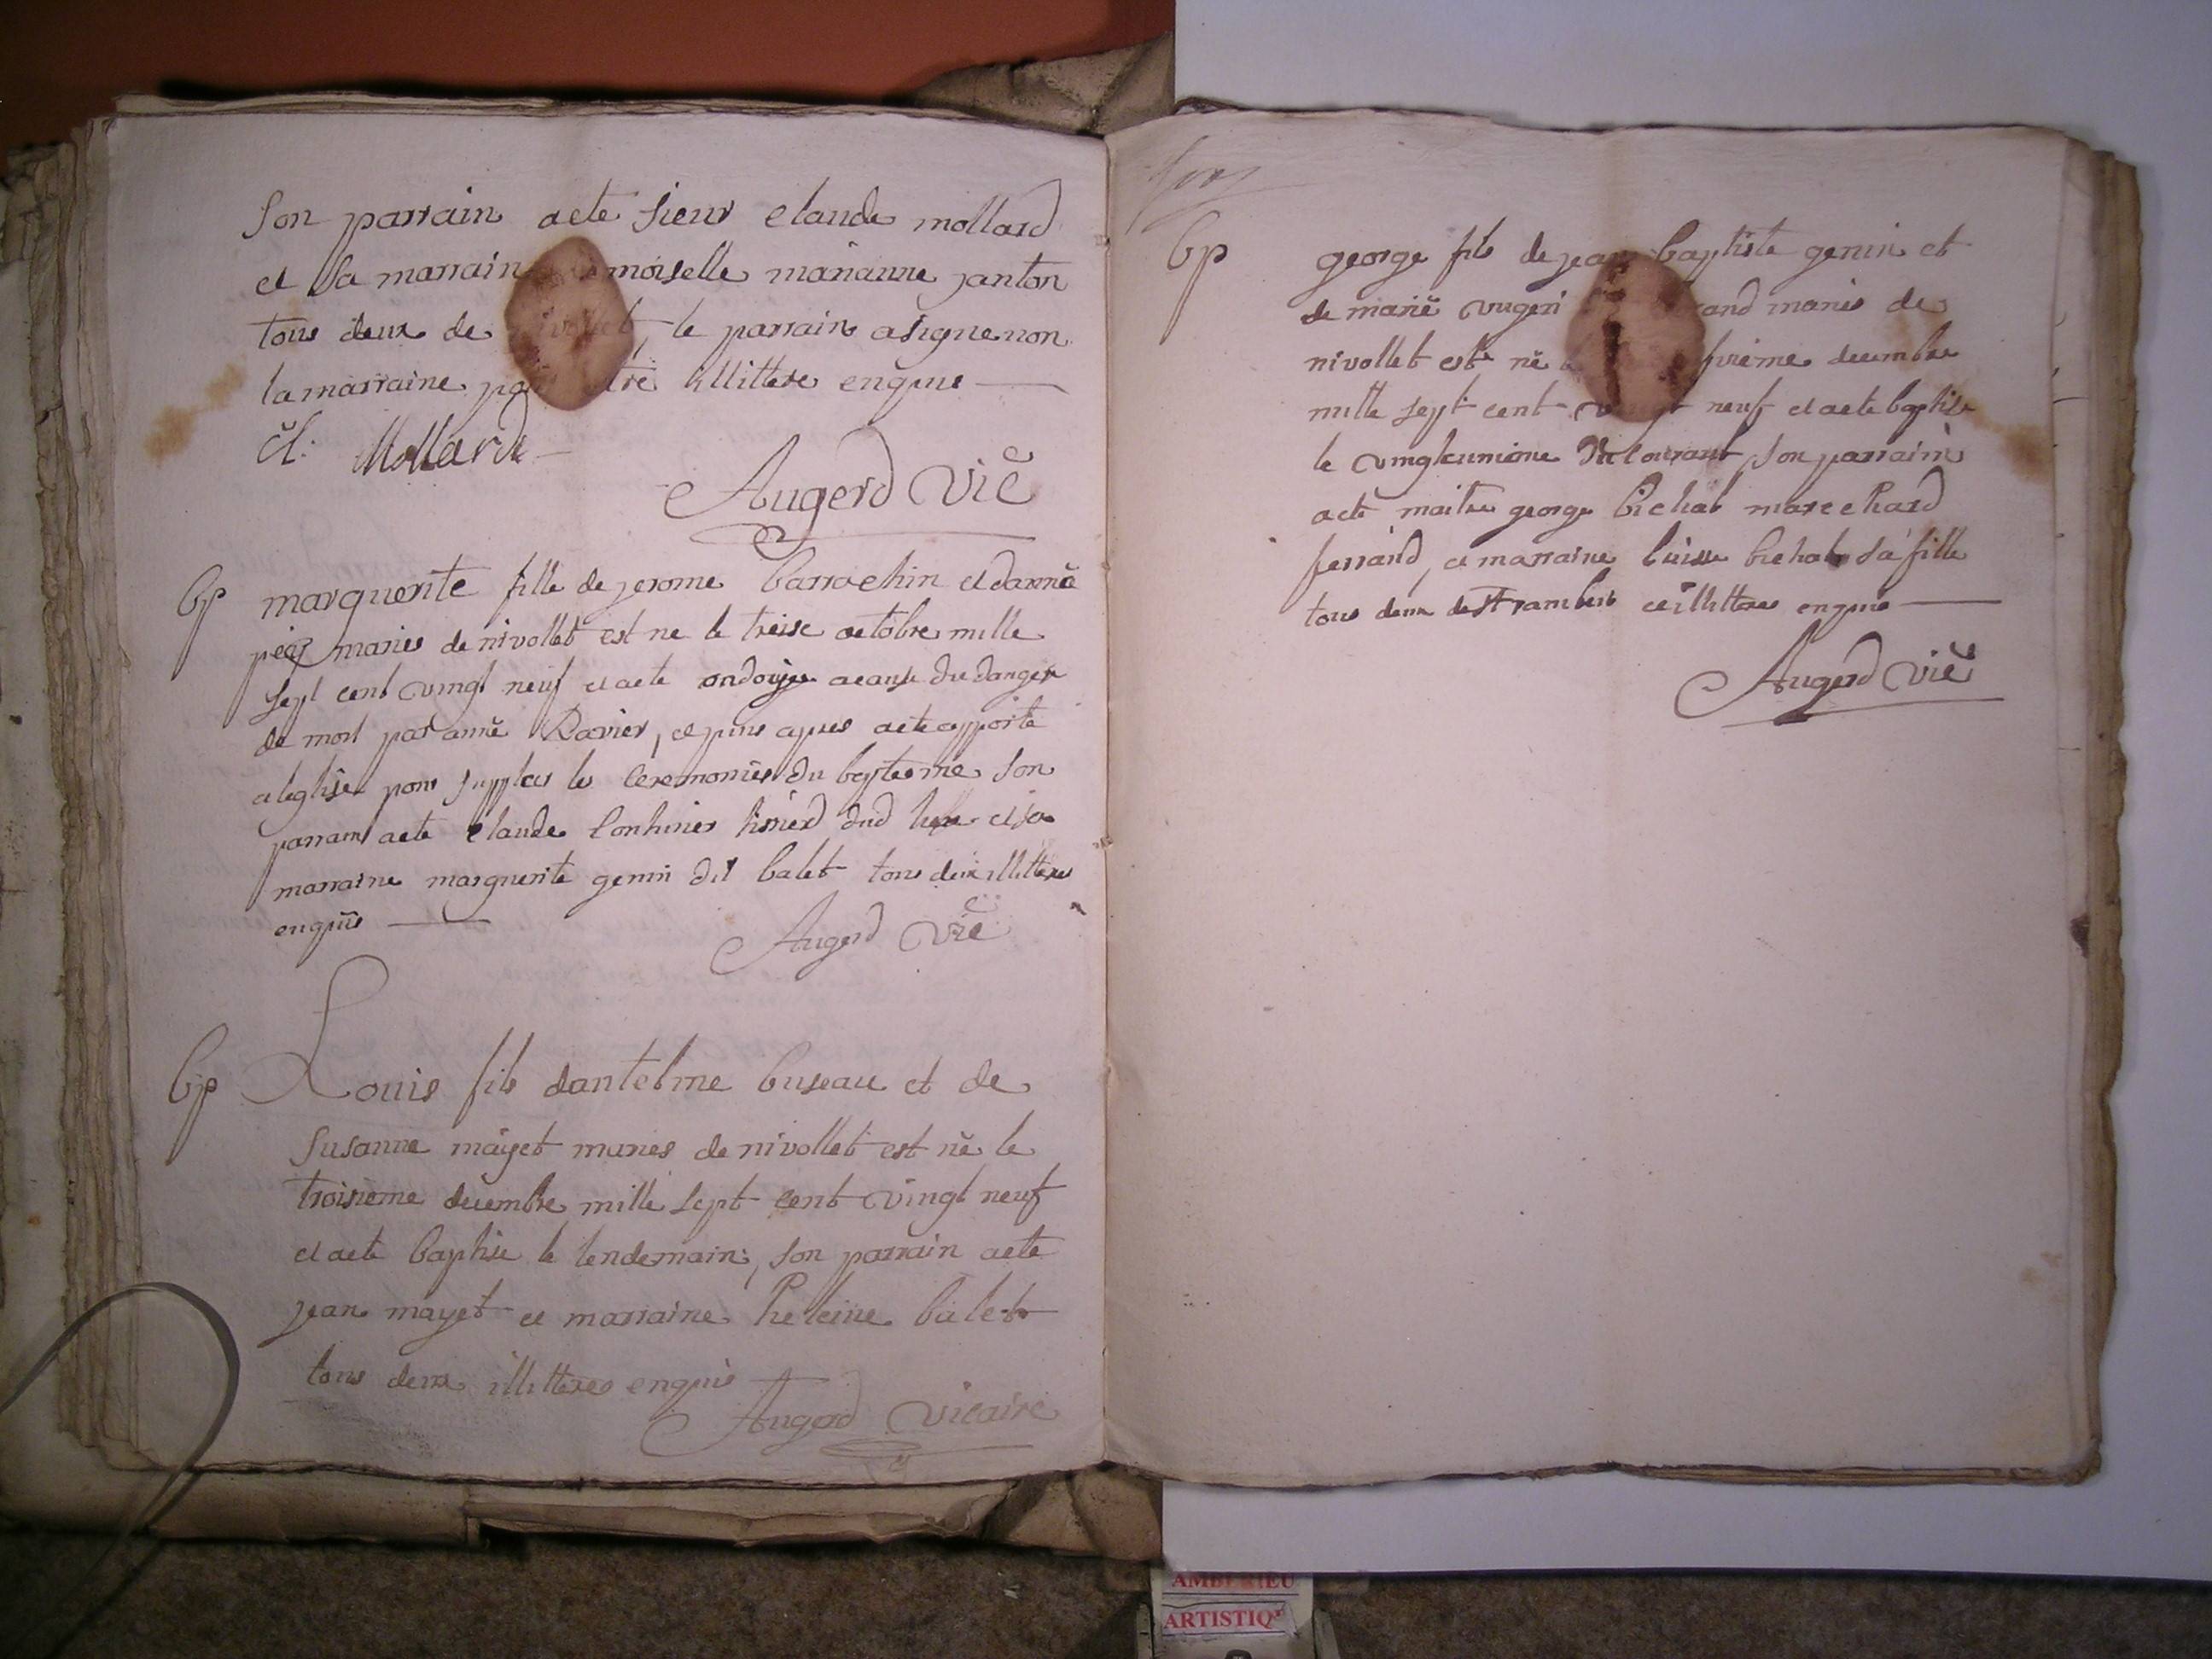 son parrain aete sieur claude mollard
et sa marraine moiselle marianne janton
tous deux de nivollet, le parrain a signe non
la marraine pour etre illittere enquis
cl: Mollard
Augerd vic
bp marguerite fille de jerome barrachin et danne
maries de nivollet est ne le treise octobre mille
sept cent vingt neuf et aete ondoyee acause du danger
de mort par anne Ravier, et puis apres aete apporte
a leglise pour supplees les ceremonies du bapteme son
parrain aete claude dud et sa
marraine marguerite genin dit balet tous deux illitteres
enquis
Augerd vic
bp Louis fils dantelme buseau et de
susanne mayet maries de nivollet est ne le
troisieme decembre mille sept cent vingt neuf
et aete baptise le lendemain, son parrain aete
jean mayet et marraine heleine balet
tous deux illitteres enquis
Augerd vicaire
bp george fils de jean baptiste genin et
de marie vugeri rand maries de
nivollet est ne decembre
mille sept cent vingt neuf et aete baptise
le du courant, son parrain
aete maitre george bichat marechard
ferrand, et marraine bichat sa fille
tous deux et illitteres enquis
Augerd vic
AMBERIEU
ARTISTIQ